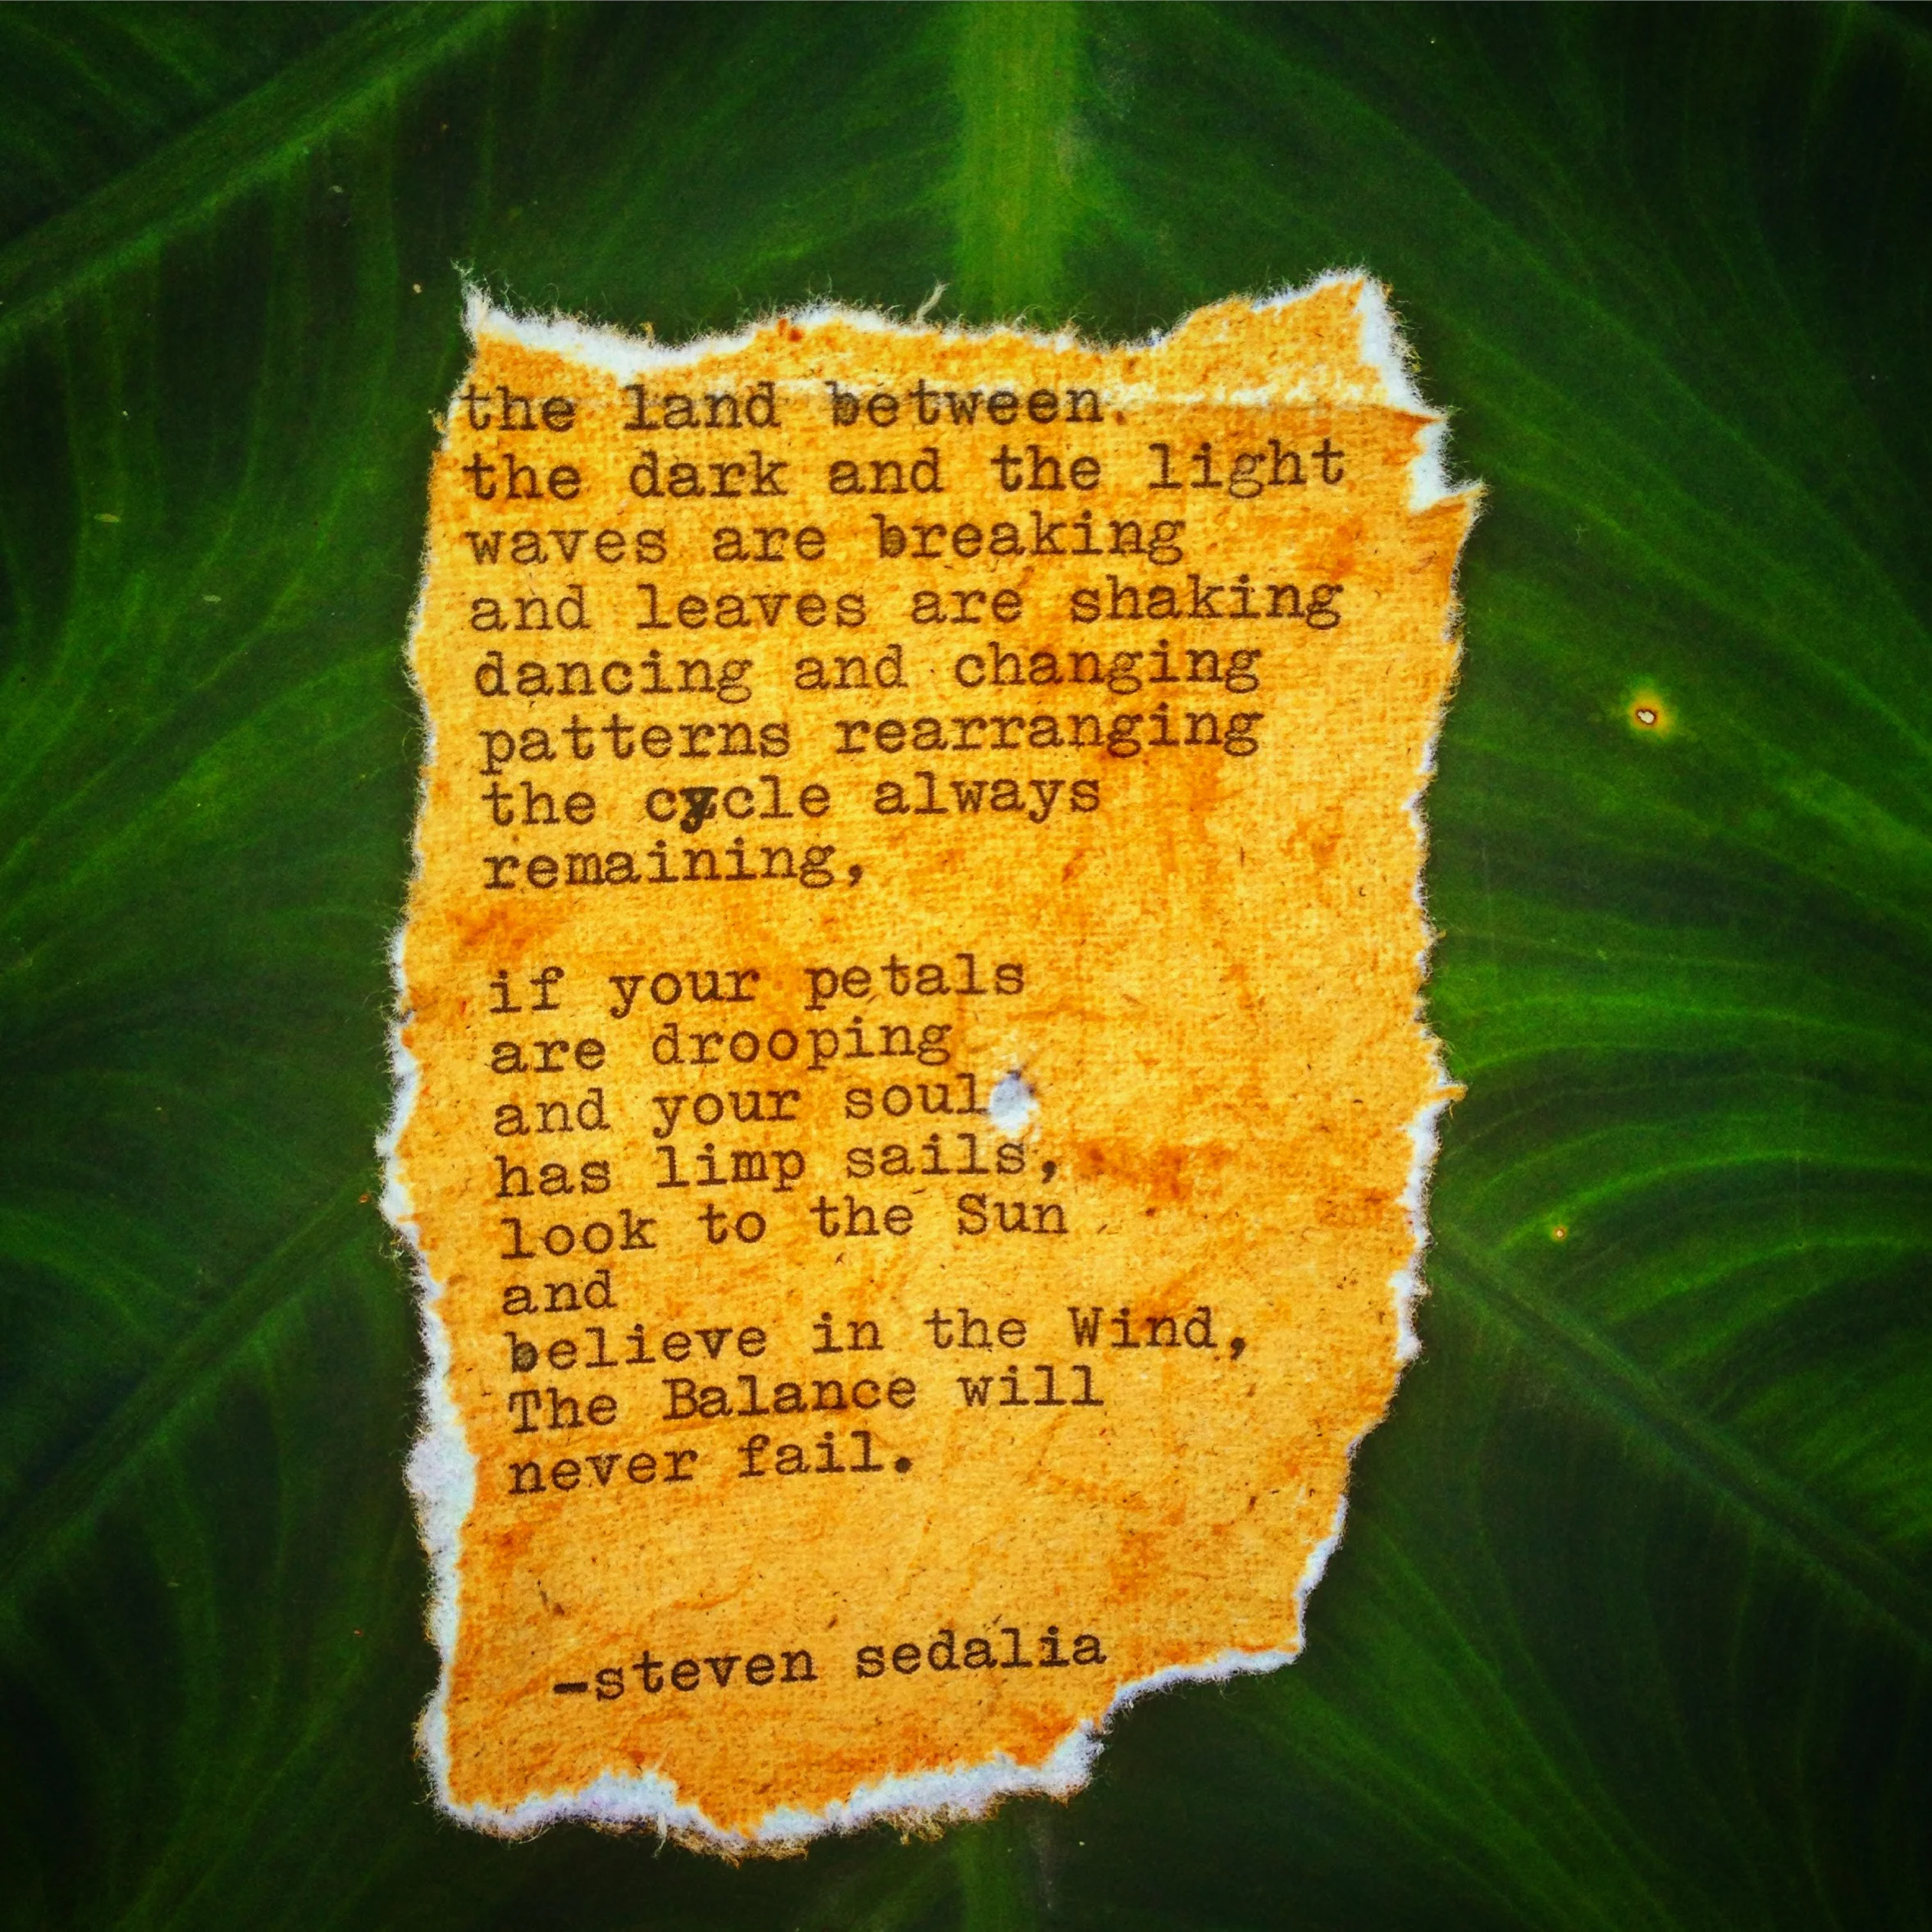 the land between
the dark and the light
waves are breaking
and leaves are shaking
dancing and changing
patterns rearranging
the cycle always
remaining,
if your petals
are drooping
and your soul
has limp sails,
look to the Sun
and
believe in the Wind,
The Balance will
never fail.
-steven sedalia